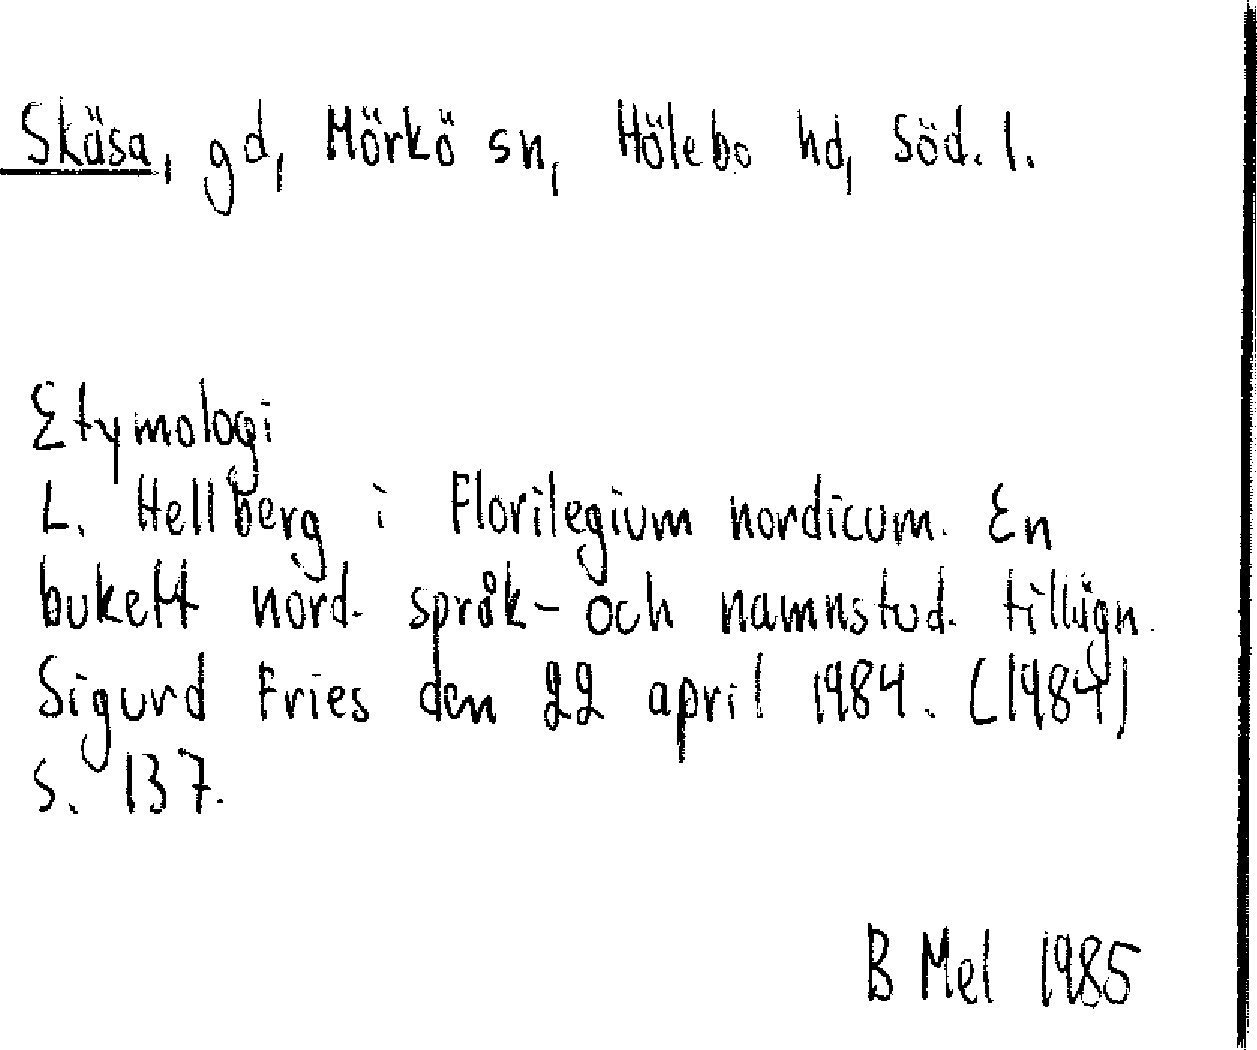 Skäsa, gd, Mörkö sn, Hölebo hd, Söd. l.
Etymologi
L. Hellberg i Florilegium nordicum. En
bukett nord. språk- och namnstud. tillägn.
Sigurd Fries den 22 april 1984. (1984)
s. 137.
B Mel 1985